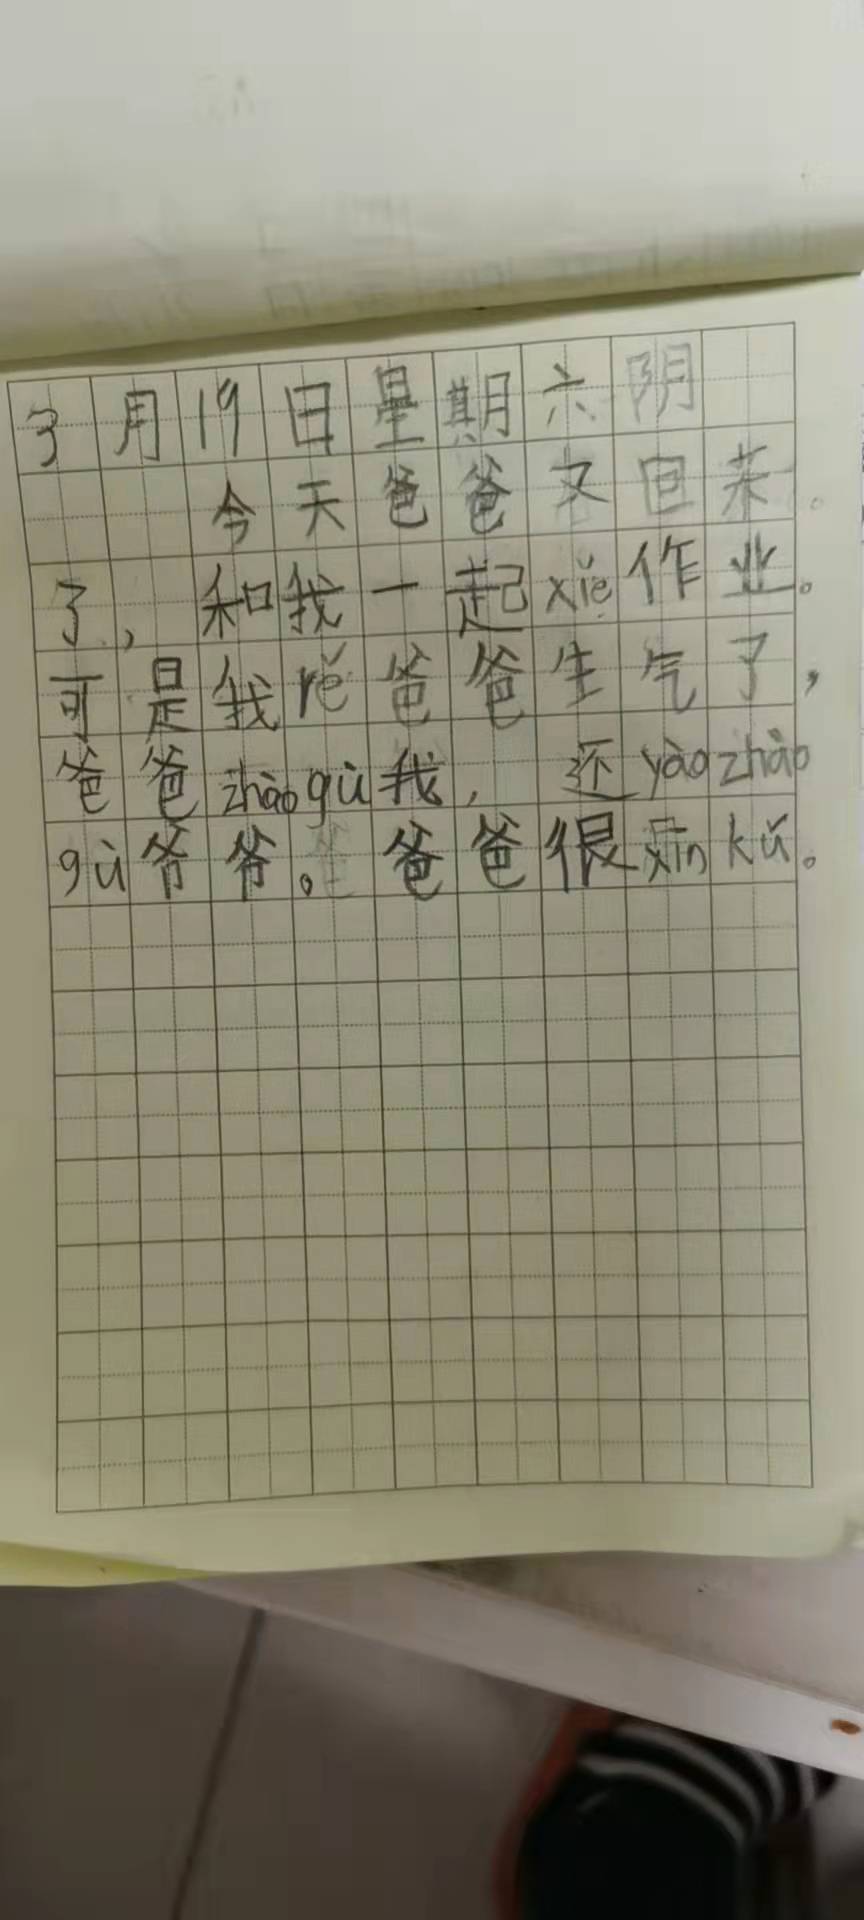 3月19日星期六阴
今天爸爸又回来
了，和我一起xiě作业。
可是我rě爸爸生气了，
爸爸zhàogù我，还yàozhào
gù爷爷。爸爸很xīnkǔ。